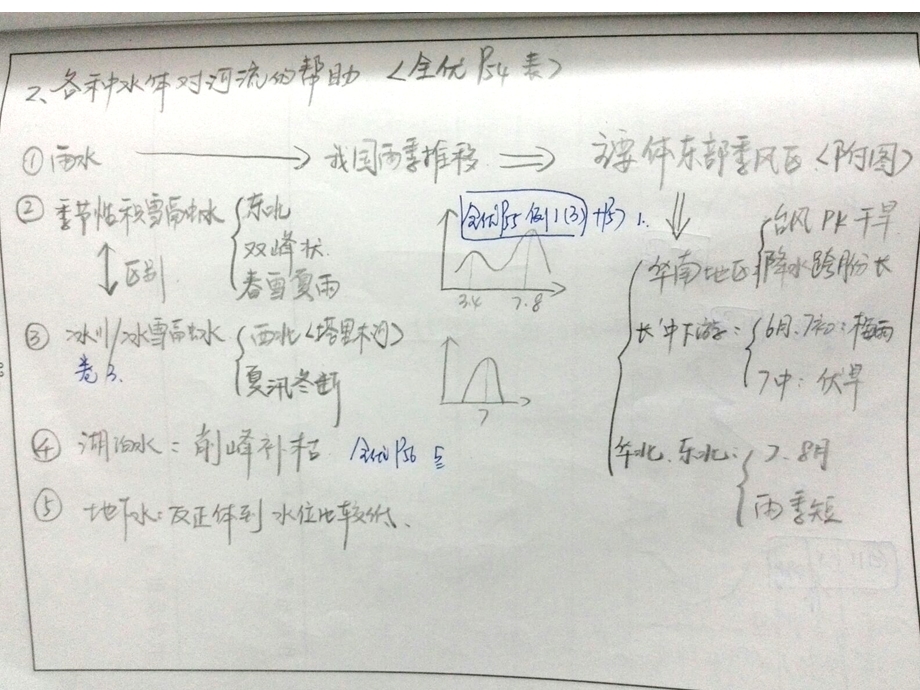 2、各种水体对河流的帮助 <全优P54表>
①雨水 → 我国雨季推移 ⇒ 主要体东部季风区<附图>
②季节性积雪融水 { 东北
双峰状
春雪夏雨
全优P55 例1(3)
3.4 7.8
↕区别
华南地区 { 台风PK干旱
降水跨月份长
③冰川/冰雪融水 { 西北<塔里木河>
夏汛冬断
卷3.
7
长中下游: { 6月、7初:梅雨
7中:伏旱
④湖泊水:削峰补枯 全优P56
华北、东北: { 7、8月
雨季短
⑤地下水:反正体到水位比较低、